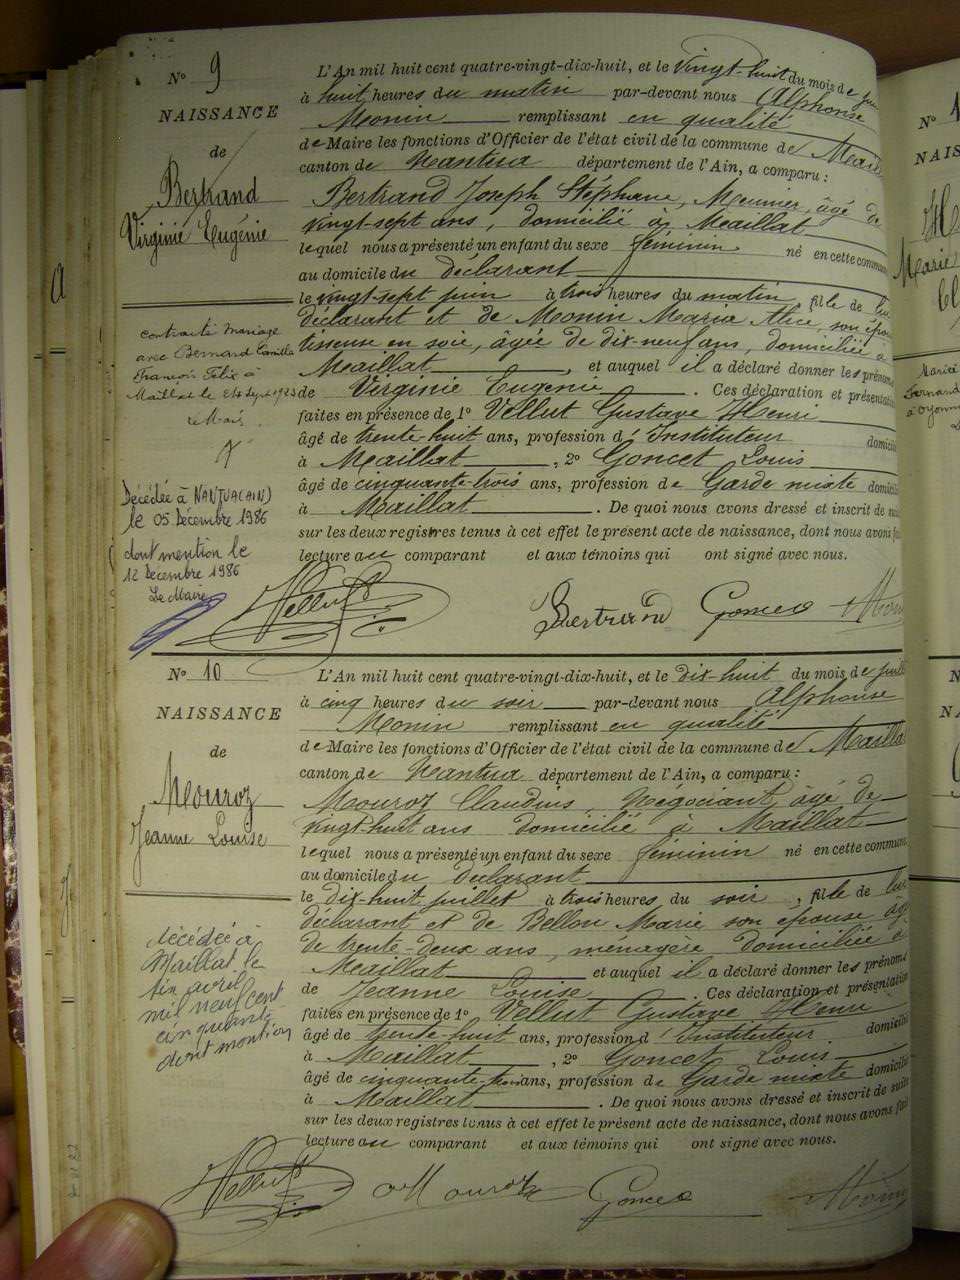 N° 9
NAISSANCE
de
Bertrand
Virginie Eugénie
A
contracté mariage
avec Bernard Camille
François Félix à
Maillat le 24 Sept 1923
le Maire
Décédée à NANTUA (AIN)
le 05 Décembre 1986
dont mention le
12 Décembre 1986
Le Maire
L'An mil huit cent quatre-vingt-dix-huit, et le Vingt-huit du mois de
à huit heures du matin par-devant nous Alphonse
Monin remplissant en qualité
de Maire les fonctions d'Officier de l'état civil de la commune de Maill
canton de Nantua département de l'Ain, a comparu :
Bertrand Joseph Stéphane, Meunier, âgé de
vingt-sept ans, domicilié à Maillat
lequel nous a présenté un enfant du sexe féminin né en cette commune
au domicile du déclarant
le vingt-sept juin à trois heures du matin, fille de lui
déclarant et de Monin Maria Alice, son épou
tisseuse en soie, âgée de dix-neuf ans, domiciliée à
Maillat, et auquel il a déclaré donner les prénoms
de Virginie Eugenie. Ces déclaration et présentation
faites en présence de 1° Vellut Gustave Henri
âgé de trente-huit ans, profession d'Instituteur domicili
à Maillat, 2° Goncet Louis
âgé de cinquante-trois ans, profession de Garde mixte domicilié
à Maillat. De quoi nous avons dressé et inscrit de suite
sur les deux registres tenus à cet effet le présent acte de naissance, dont nous avons fait
lecture au comparant et aux témoins qui ont signé avec nous.
Vellut Bertrand Goncet Monin
N° 10
NAISSANCE
de
Mouroz
Jeanne Louise
décédée à
Maillat le
six avril
mil neuf cent
cinquante
dont mention
L'An mil huit cent quatre-vingt-dix-huit, et le dix-huit du mois de juill
à cinq heures du soir par-devant nous Alphonse
Monin remplissant en qualité
de Maire les fonctions d'Officier de l'état civil de la commune de Maillat
canton de Nantua département de l'Ain, a comparu :
Mouroz Claudius, Négociant, âgé de
vingt-huit ans domicilié à Maillat
lequel nous a présenté un enfant du sexe féminin né en cette commune
au domicile du déclarant
le dix-huit juillet à trois heures du soir, fille de lui
déclarant et de Bellou Marie son épouse âgée
de trente-deux ans, ménagère domiciliée à
Maillat et auquel il a déclaré donner les prénoms
de Jeanne Louise. Ces déclaration et présentation
faites en présence de 1° Vellut Gustave Henri
âgé de trente-huit ans, profession d'Instituteur domicilié
à Maillat, 2° Goncet Louis
âgé de cinquante-trois ans, profession de Garde mixte domicilié
à Maillat. De quoi nous avons dressé et inscrit de suite
sur les deux registres tenus à cet effet le présent acte de naissance, dont nous avons fait
lecture au comparant et aux témoins qui ont signé avec nous.
Vellut Mouroz Goncet Monin